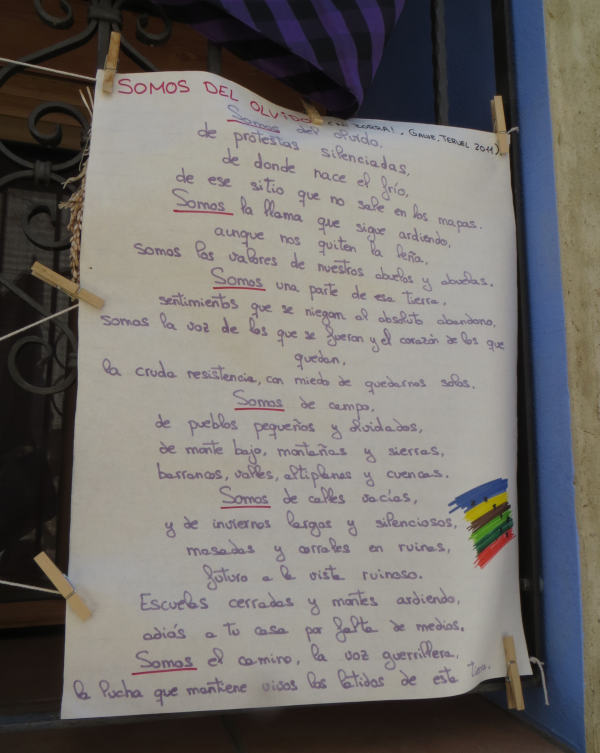 SOMOS DEL OLVIDO ZORRA! . GAUE, TERUEL 2011).
Somos del olvido,
de protestas silenciadas,
de donde nace el frío,
de ese sitio que no sale en los mapas.
Somos la llama que sigue ardiendo,
aunque nos quiten la leña,
somos los valores de nuestros abuelos y abuelas.
Somos una parte de esa tierra,
sentimientos que se niegan al absoluto abandono,
somos la voz de los que se fueron y el corazón de los que
quedan,
la cruda resistencia, con miedo de quedarnos solos.
Somos de campo,
de pueblos pequeños y olvidados,
de monte bajo, montañas y sierras,
barrancos, valles, altiplanos y cuencas.
Somos de calles vacías,
y de inviernos largos y silenciosos,
masadas y corrales en ruinas,
futuro a la vista ruinoso.
Escuelas cerradas y montes ardiendo,
adiós a tu casa por falta de medios.
Somos el camino, la voz guerrillera,
la lucha que mantiene vivos los latidos de esta tierra.